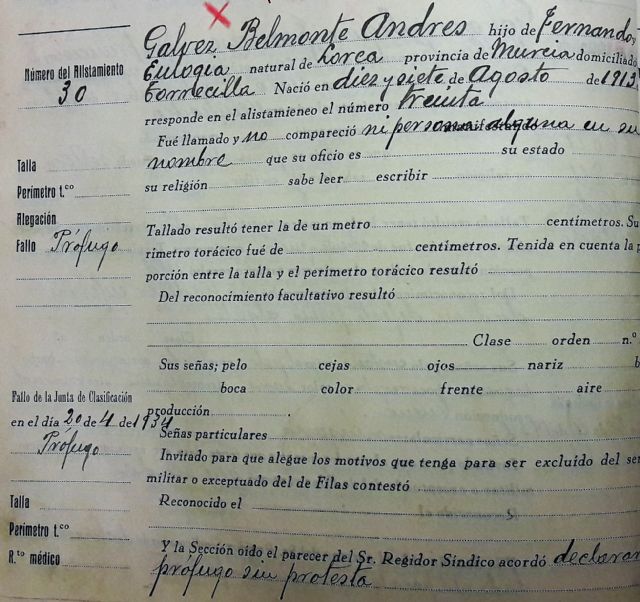 Galvez Belmonte Andres hijo de Fernando y
Eulogia natural de Lorca provincia de Murcia domiciliado
Torrecilla Nació en diez y siete de Agosto de 1913
rresponde en el alistamieneo el número treinta
Fué llamado y no compareció ni persona alguna en su
nombre que su oficio es su estado
su religión sabe leer escribir
Tallado resultó tener la de un metro centímetros. Su
rímetro torácico fué de centímetros. Tenida en cuenta la p
porción entre la talla y el perímetro torácico resultó
Del reconocimiento facultativo resultó
Clase orden n.º
Sus señas; pelo cejas ojos nariz b
boca color frente aire
producción
Señas particulares
Invitado para que alegue los motivos que tenga para ser excluido del ser
militar o exceptuado del de Filas contestó
Reconocido el
Y la Sección oído el parecer del Sr. Regidor Síndico acordó declarar
prófugo sin protesta
Número del Alistamiento
30
Talla
Perímetro t.co
Alegación
Fallo Prófugo
Fallo de la Junta de Clasificación
en el día 20 de 4 de 1934
Prófugo
Talla
Perímetro t.co
R.to médico